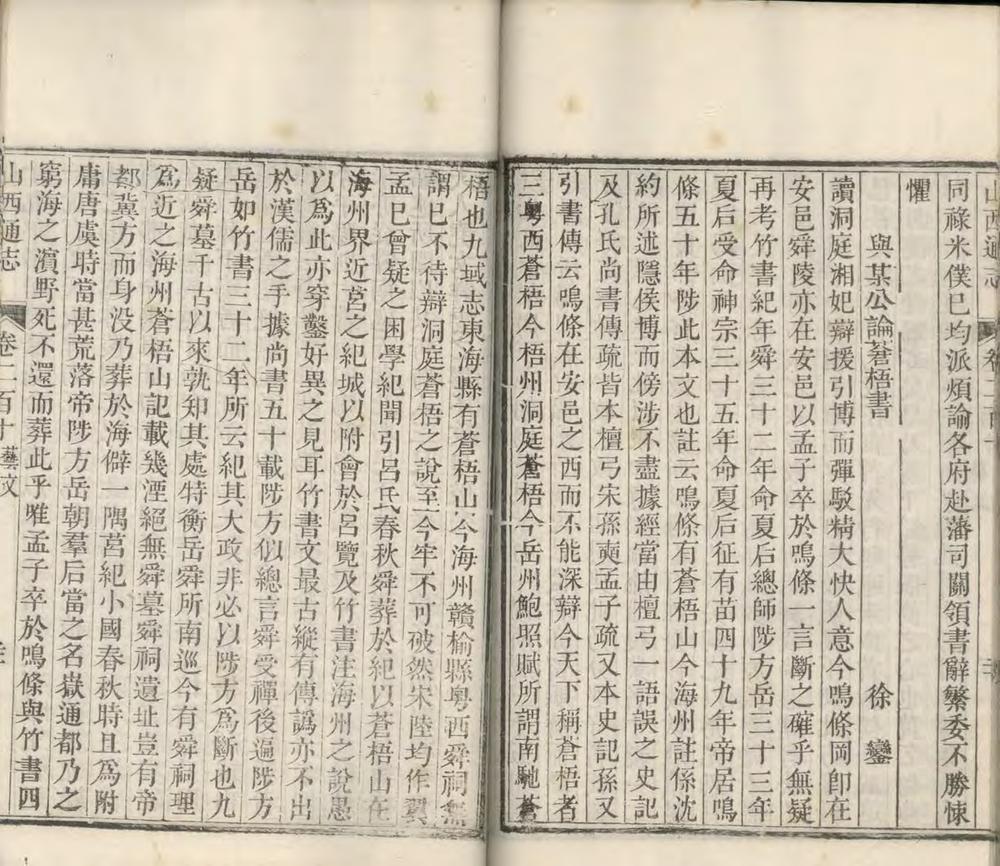 山西通志
同祿米僕已均派煩論各府赴藩司關領書辭繁委不勝悚
懼
與某公論蒼梧書 徐鑾
讀洞庭湘妃辯援引博而彈駁精大快人意今鳴條岡卽在
安邑舜陵亦在安邑以孟子卒於鳴條一言斷之確乎無疑
再考竹書紀年舜三十二年命夏后總師陟方岳三十三年
夏后受命神宗三十五年命夏后征有苗四十九年帝居鳴
條五十年陟此本文也註云鳴條有蒼梧山今海州註係沈
約所述隱侯博而傍涉不盡據經當由檀弓一語誤之史記
及孔氏尚書傳疏皆本檀弓宋孫奭孟子疏又本史記孫又
引書傳云鳴條在安邑之西而不能深辯今天下稱蒼梧者
三粤西蒼梧今梧州洞庭蒼梧今岳州鮑照賦所謂南馳蒼
梧也九域志東海縣有蒼梧山今海州贛榆縣粤西舜祠無
謂已不待辯洞庭蒼梧之說至今牢不可破然宋陸均作翼
孟已曾疑之困學紀聞引呂氏春秋舜葬於紀以蒼梧山在
海州界近莒之紀城以附會於呂覽及竹書注海州之說愚
以爲此亦穿鑿好異之見耳竹書文最古縱有傳譌亦不出
於漢儒之手據尚書五十載陟方似總言舜受禪後遍陟方
岳如竹書三十二年所云紀其大政非必以陟方爲斷也九
疑舜墓千古以來孰知其處特衡岳舜所南巡今有舜祠理
爲近之海州蒼梧山記載幾湮絕無舜墓舜祠遺址豈有帝
都冀方而身没乃葬於海僻一隅莒紀小國春秋時且爲附
庸唐虞時當甚荒落帝陟方岳朝羣后當之名嶽通都乃之
窮海之濵野死不還而葬此乎唯孟子卒於鳴條與竹書四
山西通志 卷二百十 藝文